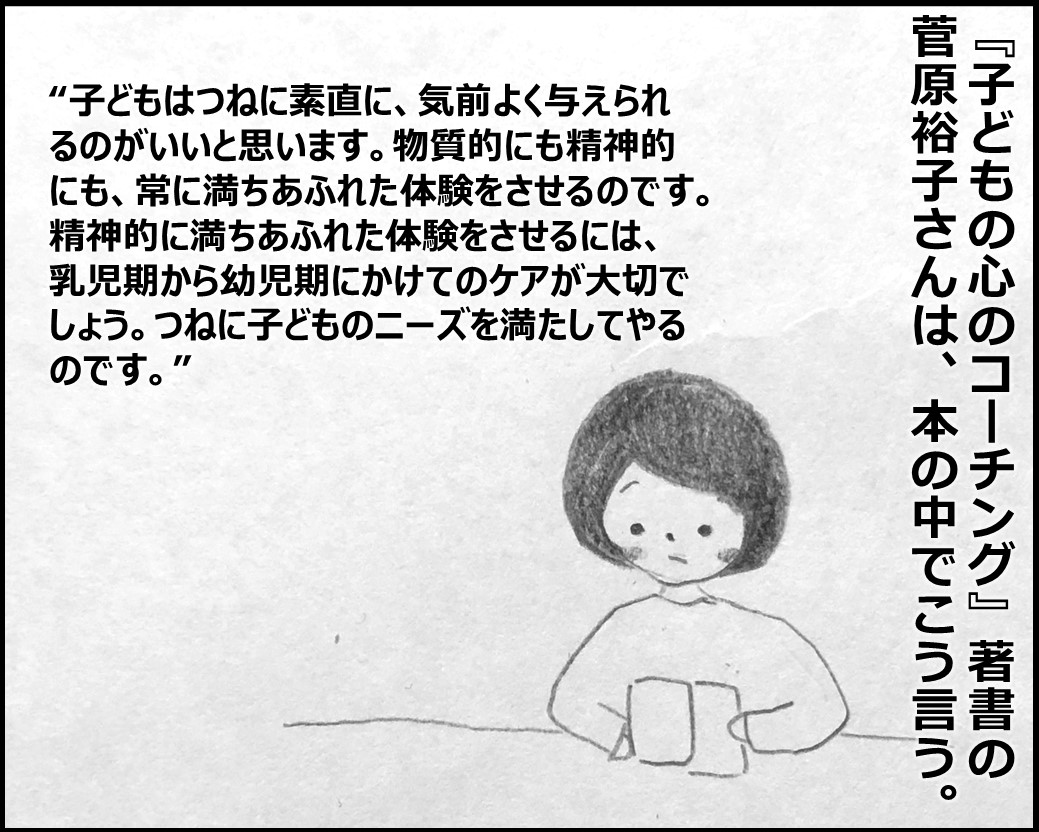 『子どもの心のコーチング』著書の
菅原裕子さんは、本の中でこう言う。
“子どもはつねに素直に、気前よく与えられ
るのがいいと思います。物質的にも精神的
にも、常に満ちあふれた体験をさせるのです。
精神的に満ちあふれた体験をさせるには、
乳児期から幼児期にかけてのケアが大切で
しょう。つねに子どものニーズを満たしてやる
のです。”